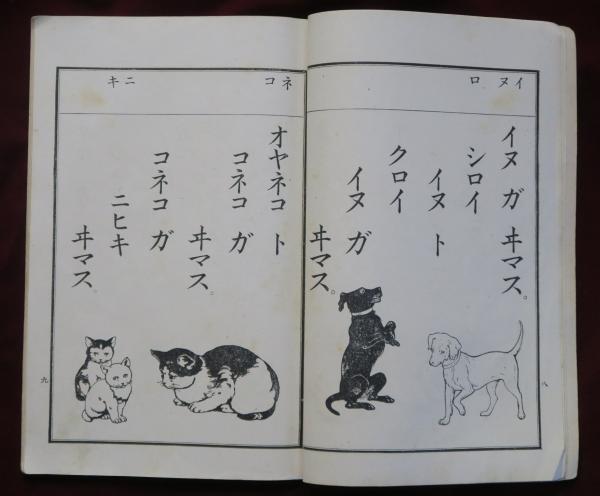 イヌ ロ
イヌ ガ ヰマス。
シロイ
イヌ ト
クロイ
イヌ ガ
ヰマス。
八
ネコ ニキ
オヤネコ ト
コネコ ガ
ヰマス。
コネコ ガ
ニヒキ
ヰマス。
九